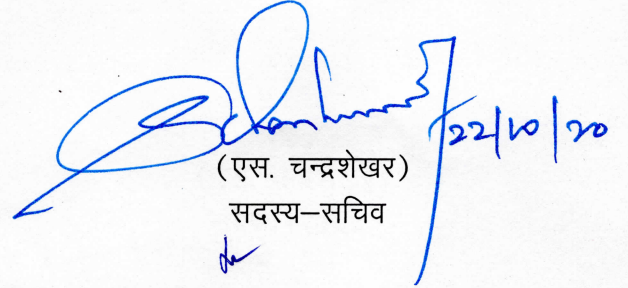 22/10/20
(एस. चन्द्रशेखर)
सदस्य–सचिव